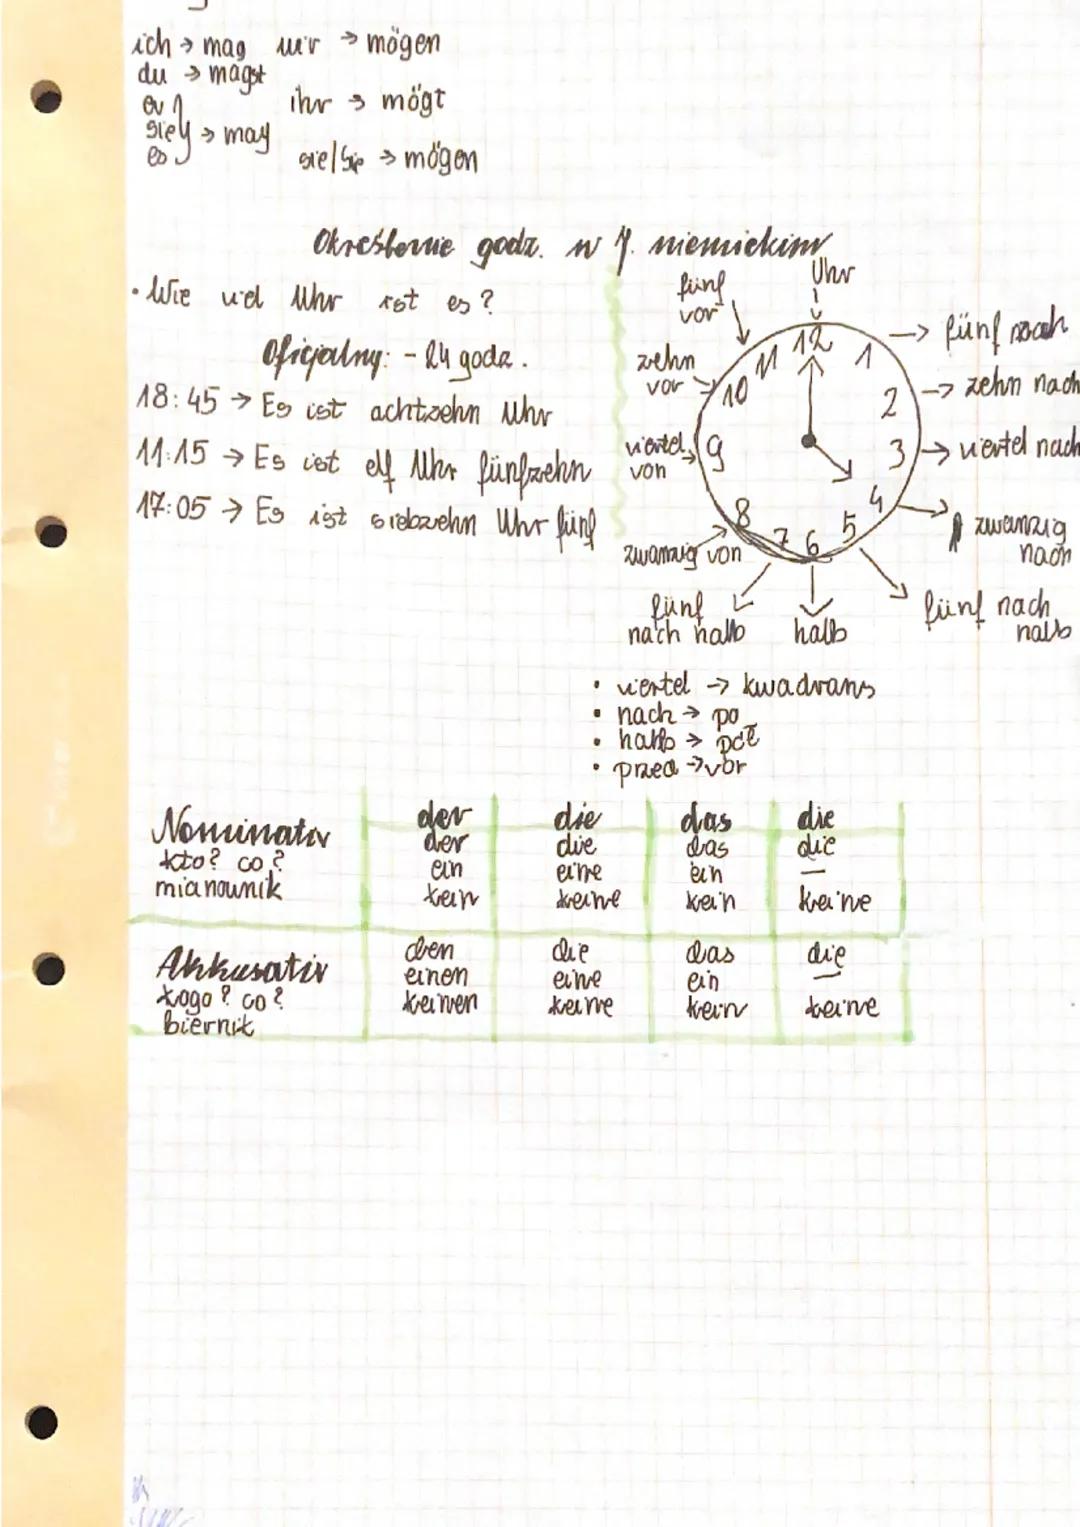 ich → mag wir → mögen
du → magst
er
sie → mag
es
ihr → mögt
sie/Sie → mögen
Określenie godz. w j. niemieckim
• Wie viel Uhr ist es?
Oficjalny: - 24 godz.
18:45 → Es ist achtzehn Uhr
11:15 → Es ist elf Uhr fünfzehn
17:05 → Es ist siebzehn Uhr fünf
Uhr
fünf
vor
zehn
vor
viertel
von
zwanzig von
fünf
nach halb
halb
fünf nach
halb
zwanzig
nach
viertel nach
zehn nach
fünf nach
12
1
2
3
4
5
6
7
8
9
10
11
• viertel → kwadrans
• nach → po
• halb → pół
• przed → vor
Nominativ
kto? co?
mianownik
der die das die
der die das die
ein eine ein —
kein keine kein keine
Akkusativ
kogo? co?
biernik
den die das die
einen eine ein —
keinen keine kein keine